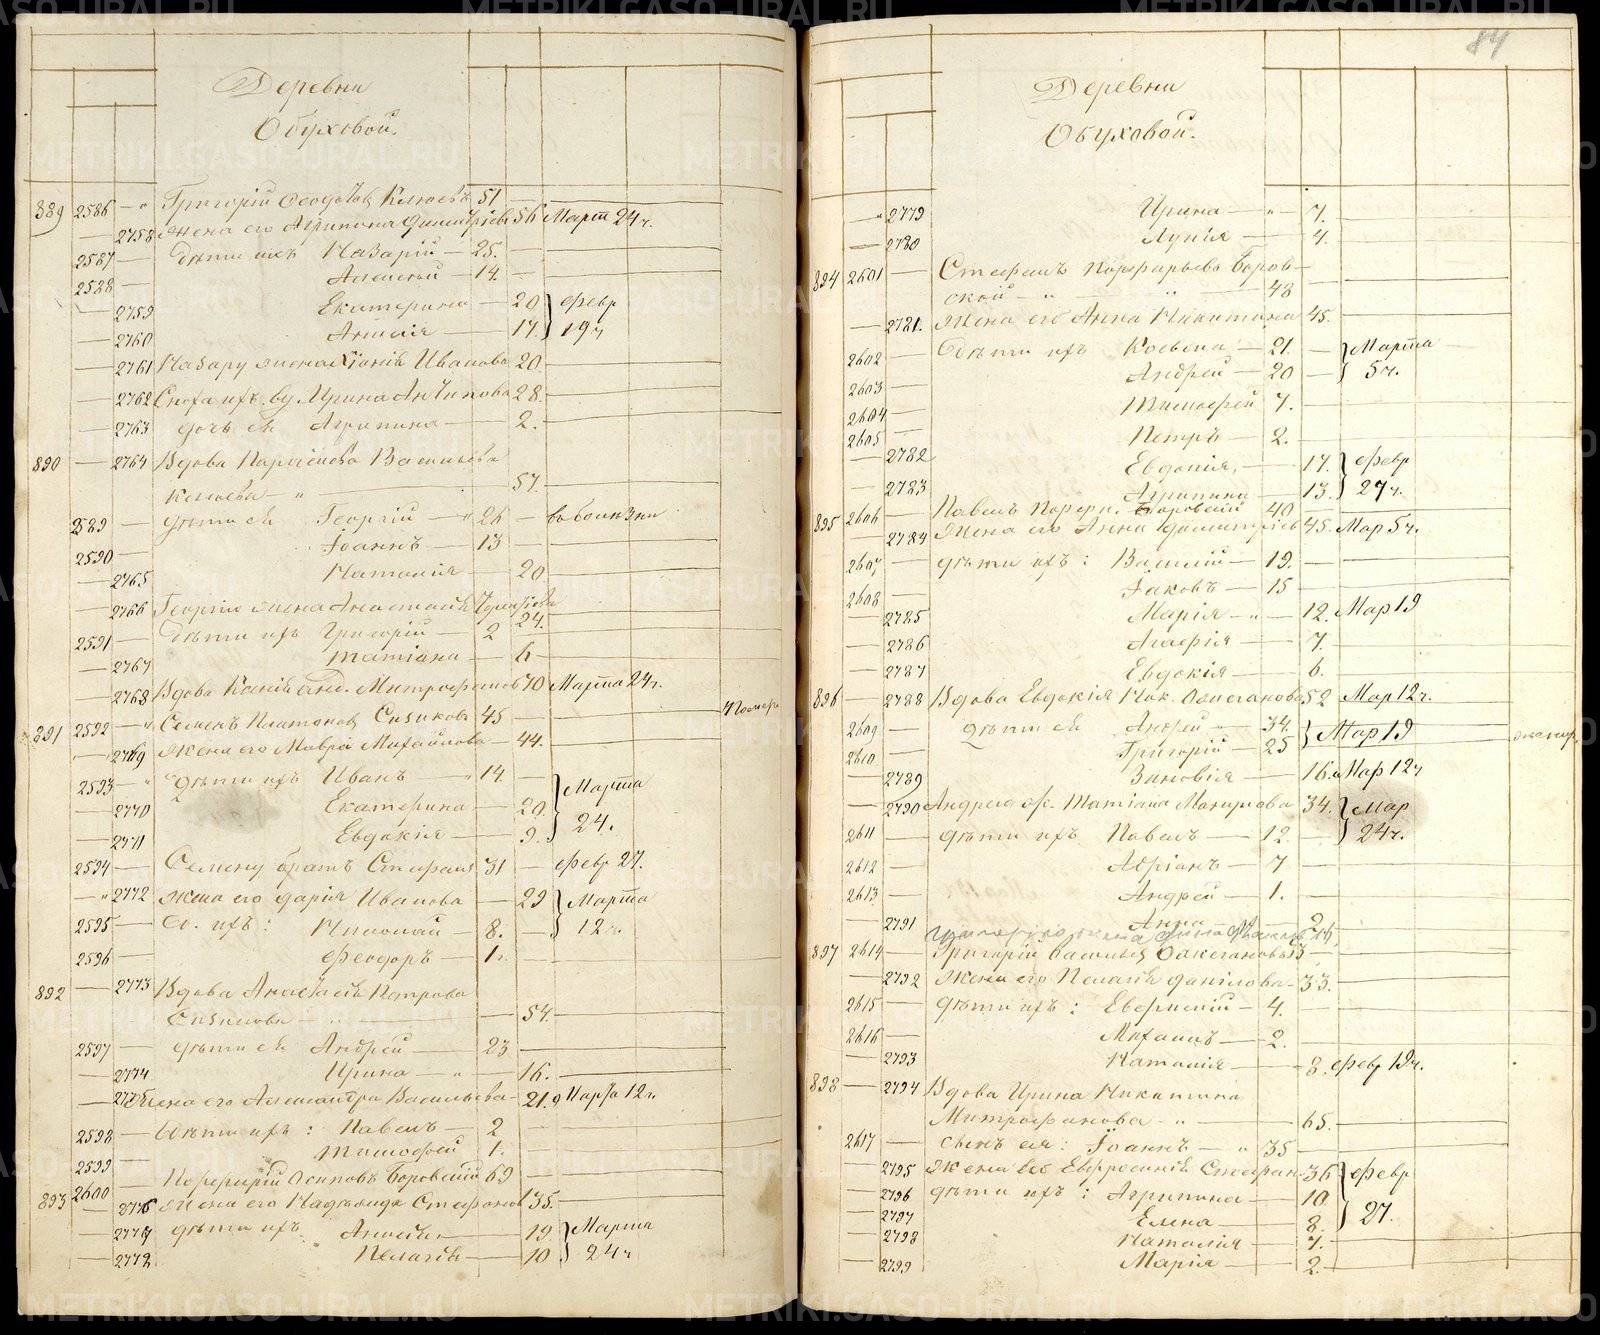 Деревни
Обуховой.
389 2586 Григорій Ѳеодотовъ Клюевъ 51
2758 Жена его Агрипина Димитріева 56 Март 24ч.
2587 Дѣти ихъ Назарій 25.
2588 Алексѣй 14.
2759 Екатерина 20 Февр
2760 Анисія 17. 19ч
2761 Назару жена Ксенія Иванова 20
2762 Сноха ихъ в. Ирина Антипова 28.
2763 дочь ея Агрипина 2.
890 2764 Вдова Параскева Васильева
Клюева 57.
2589 дѣти ея Георгій 26
2590 Іоаннъ 13
2765 Наталія 20.
2766 Георгію жена Анастасія 24.
2591 Дѣти ихъ Григорій 2
2767 Татіана 6
2768 Вдова Митрофанов 70 Марта 24ч.
891 2592 Семенъ Платоновъ Сизиковъ 45
2769 Жена его Мавра Михайлова 44.
2593 Дѣти ихъ Иванъ 14
2770 Екатерина 20. Марта
2771 Евдокія 9. 24.
2594 Семену братъ Стефанъ 31 Февр 27.
2772 жена его Дарія Иванова 29 Марта
2595 Д. ихъ: Николай 8. 12ч.
2596 Феодоръ 1.
892 2773 Вдова Анастасія Петрова
Сизикова 54.
2597 Дѣти ея Андрей 23
2774 Ирина 16.
2775 Жена его Александра Васильева 21. Марта 12ч.
2598 Дѣти ихъ: Павелъ 2
2599 Тимофей 1.
893 2600 Порфирій Осиповъ Боровскій 69
2776 Жена его Надежда Стефанов 35.
2777 дѣти ихъ Анисія 19. Марта
2778 Пелагія 10 24ч
84
Деревни
Обуховой.
2779 Ирина 7.
2780 Лукія 4.
894 2601 Стефанъ Порфирьевъ Боров-
ской 48
2781. Жена его Анна Никитина 45.
2602 Дѣти ихъ Косьма 21. Марта
2603 Андрей 20 5ч.
2604 Тимофей 7.
2605 Петръ 2.
2782 Евдокія 17. Февр
2783 Агрипина 13. 27ч.
895 2606 Павелъ Порфир. Боровскій 40
2784 Жена его Анна Димитріев 45. Мар 5ч.
2607 Дѣти ихъ: Василій 19.
2608 Іаковъ 15
2785 Марія 12. Мар 19
2786 Агафія 7.
2787 Евдокія 6.
896 2788 Вдова Евдокія Ник. 52 Мар 12ч.
2609 Дѣти ея Андрей 34. Мар 19
2610 Григорій 25
2789 Зиновія 16. Мар 12ч
2790 Андрея ж. Татіана 34. Мар
2611 Дѣти ихъ Павелъ 12. 24ч.
2612 Адріанъ 7
2613 Андрей 1.
2791 Анна 2
897 2614 Григорій Васильев
2792 Жена его Пелагія Данилова 33.
2615 Дѣти ихъ: 4.
2616 Михаилъ 2.
2793 Наталія 8. Февр 19ч.
898 2794 Вдова Ирина Никитина
Митрофанова 65.
2617 Сынъ ея: Іоаннъ 35
2795 Жена его Евфросинія Стефан. 36 Февр
2796 дѣти ихъ: Агрипина 10 27.
2797 Елена 8.
2798 Наталія 7.
2799 Марія 2.